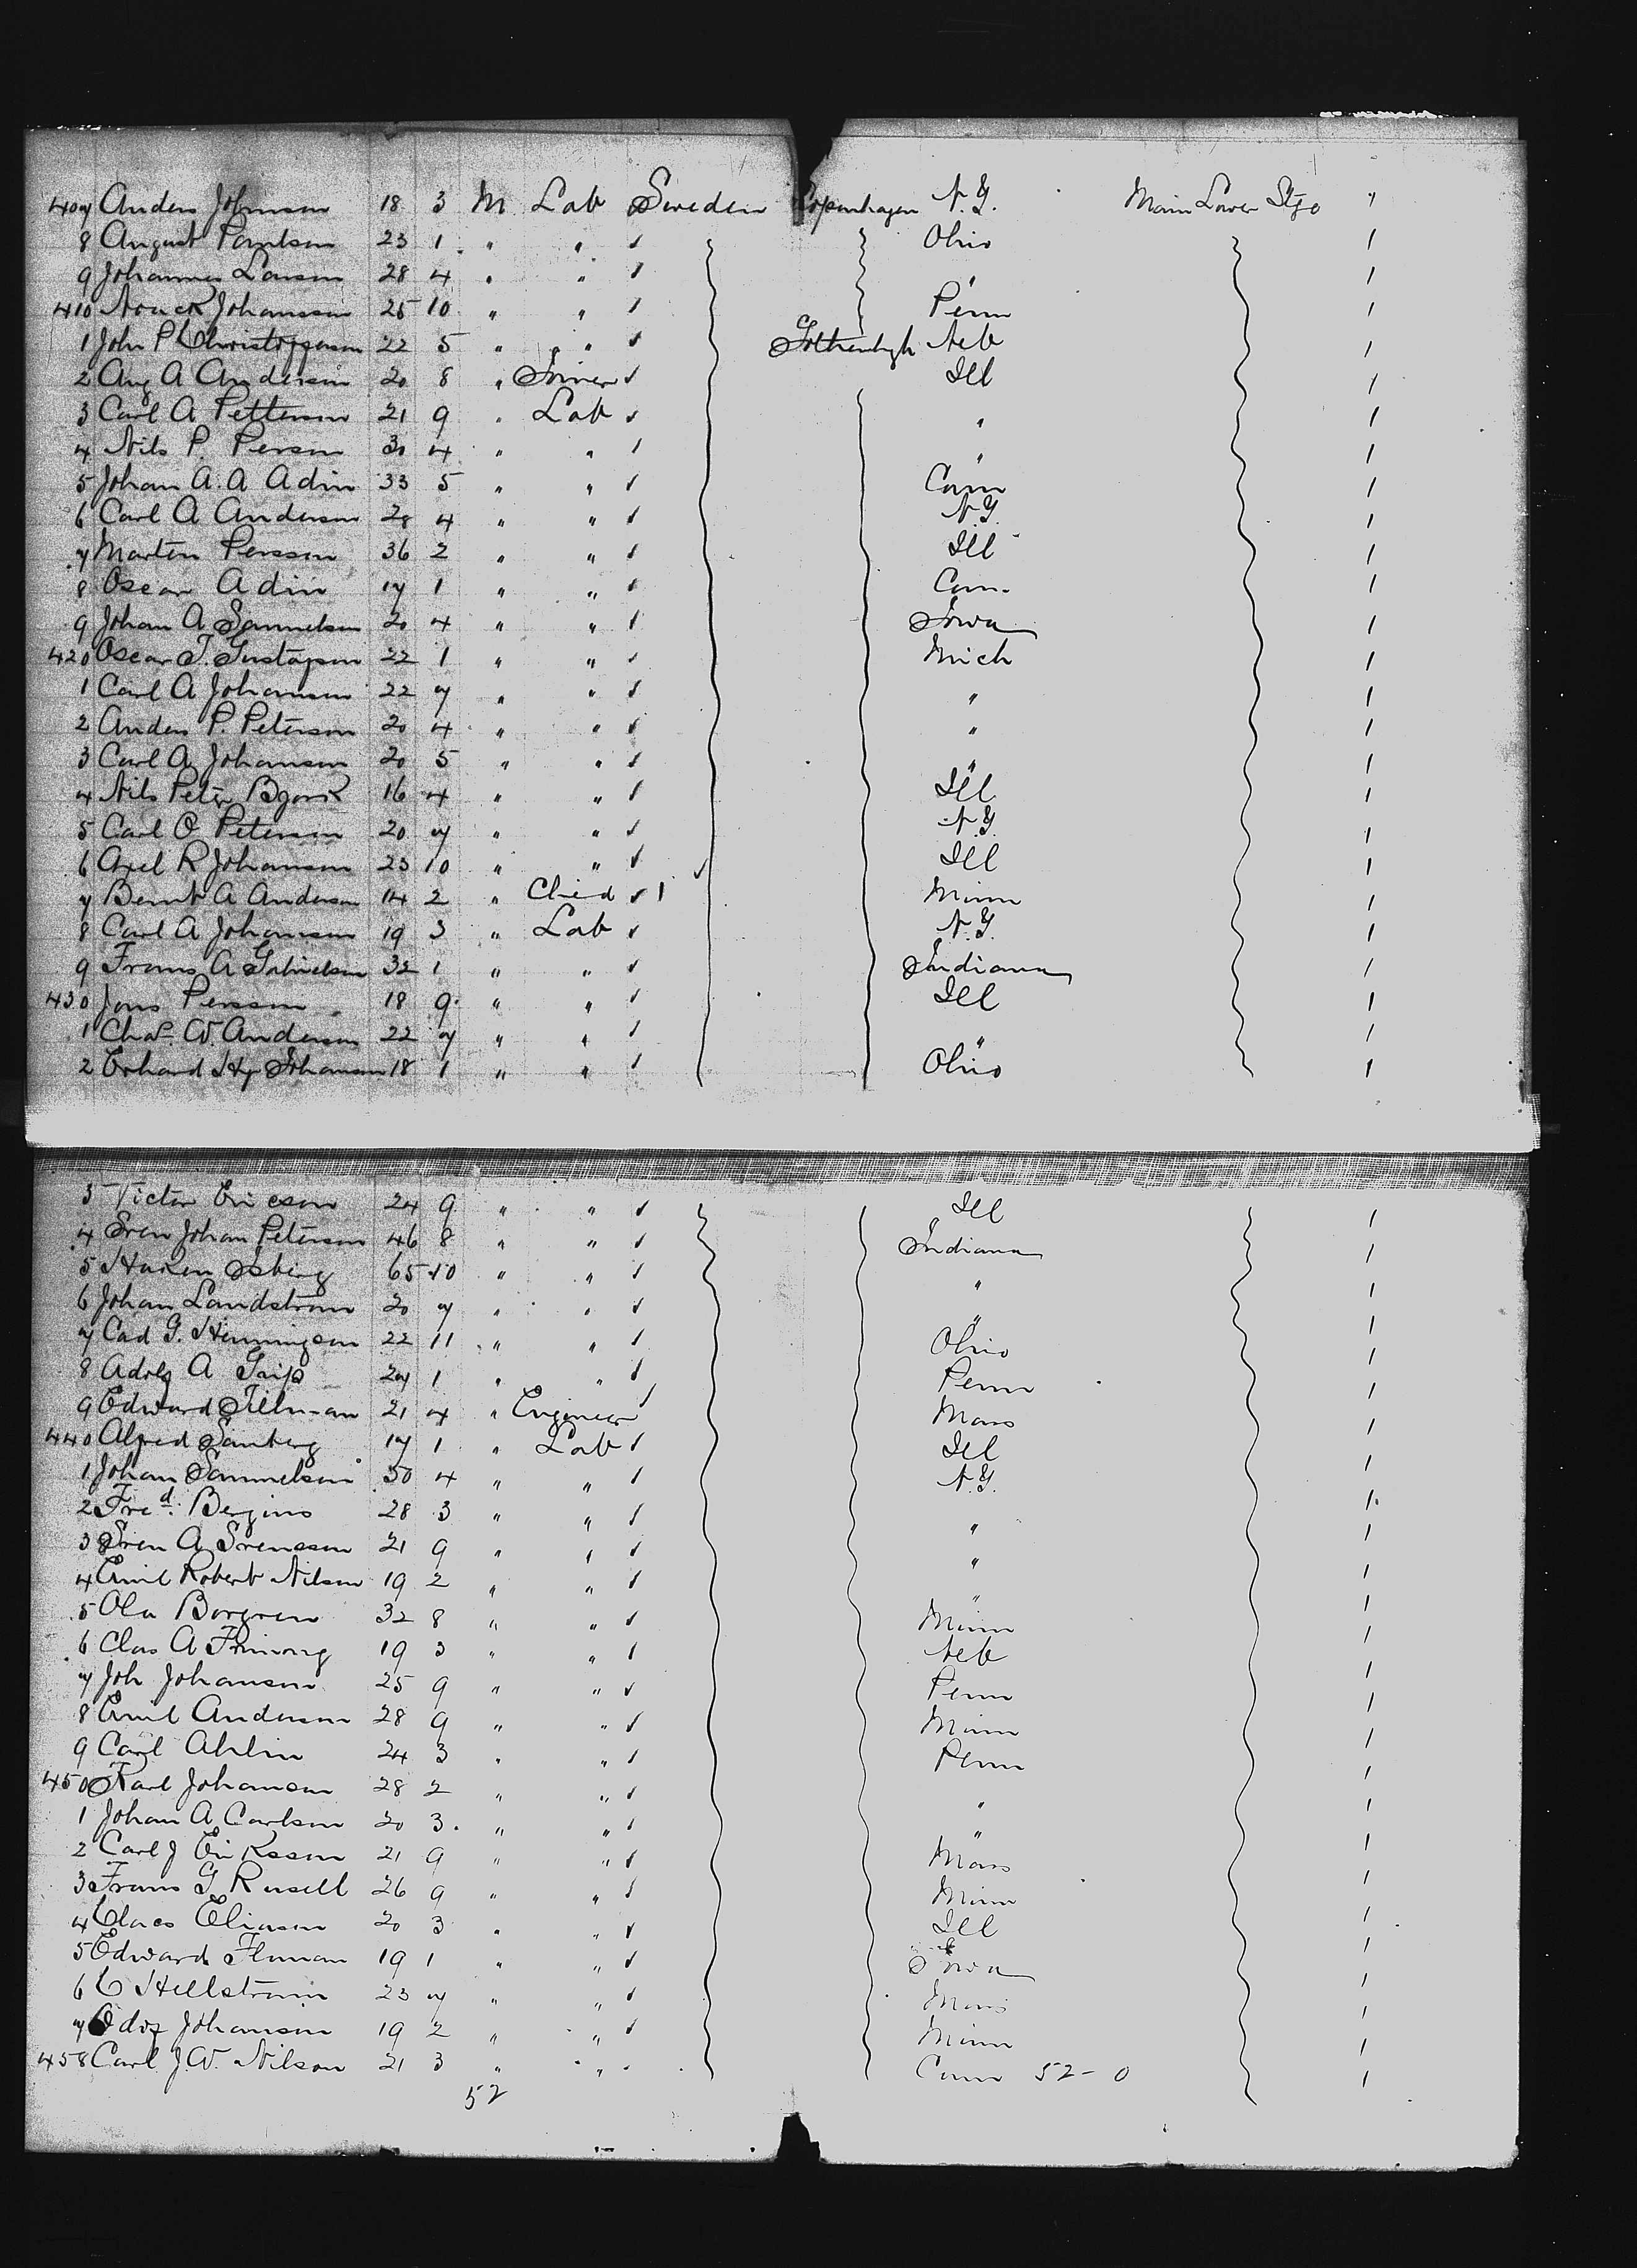 407 Anders Johnson 18 3 M Lab Sweden Copenhagen N.Y. Main Lower Stge "
8 August Paulson 23 1 " " Ohio 1
9 Johannes Larson 28 4 " " " 1
410 Johansson 25 10 " " Penn 1
1 John P Christofferson 22 5 " " Gothenbgh Neb 1
2 Aug A Anderson 20 8 " Joiner Ill 1
3 Carl A Petterson 21 9 " Lab " 1
4 Nils P. Person 30 4 " " " 1
5 Johan A. A Adin 33 5 " " Conn 1
6 Carl A Anderson 28 4 " " N.Y. 1
7 Marten Persson 36 2 " " Ill 1
8 Oscar Adin 17 1 " " Conn. 1
9 Johan A Samuelson 20 4 " " Iowa 1
420 Oscar T. Gustafson 22 1 " " Mich 1
1 Carl A Johanson 22 7 " " " 1
2 Anders P. Peterson 20 4 " " " 1
3 Carl A Johanson 20 5 " " " 1
4 Nils Peter Bjork 16 4 " " Ill 1
5 Carl O Peterson 20 7 " " N.Y. 1
6 Axel R Johanson 23 10 " " Ill 1
7 Bernt A Anderson 14 2 " Child 1 Minn 1
8 Carl A Johanson 19 3 " Lab N.Y. 1
9 Frans A Gabrielson 32 1 " " Indiana 1
430 Jons Persson 18 9 " " Ill 1
1 Chas. W. Anderson 22 7 " " " 1
2 Erhard Hy Johanson 18 1 " " Ohio 1
3 Victor Ericson 24 9 " " Ill 1
4 Sven Johan Peterson 46 8 " " Indiana 1
5 Haken Isberg 65 10 " " " 1
6 Johan Landstrom 20 7 " " " 1
7 Carl G. Henningson 22 11 " " Ohio 1
8 Adolf A 27 1 " " Penn 1
9 Edward Tillman 21 4 " Engineer Mass 1
440 Alfred Sanberg 17 1 " Lab Ill 1
1 Johan Samuelson 30 4 " " N.Y. 1
2 Fred. Begins 28 3 " " " 1
3 Sven A Svensson 21 9 " " " 1
4 Emil Robert Nilson 19 2 " " " 1
5 Ola Borgren 32 8 " " Minn 1
6 Clas A 19 3 " " Neb 1
7 Joh Johanson 25 9 " " Penn 1
8 Emil Anderson 28 9 " " Minn 1
9 Carl Ahlin 24 3 " " Penn 1
450 Karl Johanson 28 2 " " " 1
1 Johan A Carlson 20 3 " " " 1
2 Carl J Eriksson 21 9 " " Mass 1
3 Frans G Rusell 26 9 " " Minn 1
4 Claes Eliason 20 3 " " Ill 1
5 Edward 19 1 " " Iowa 1
6 C Hellstrom 23 7 " " Mass 1
7 Johanson 19 2 " " Minn 1
458 Carl J.W. Nilson 21 3 " " Conn 52-0 1
52